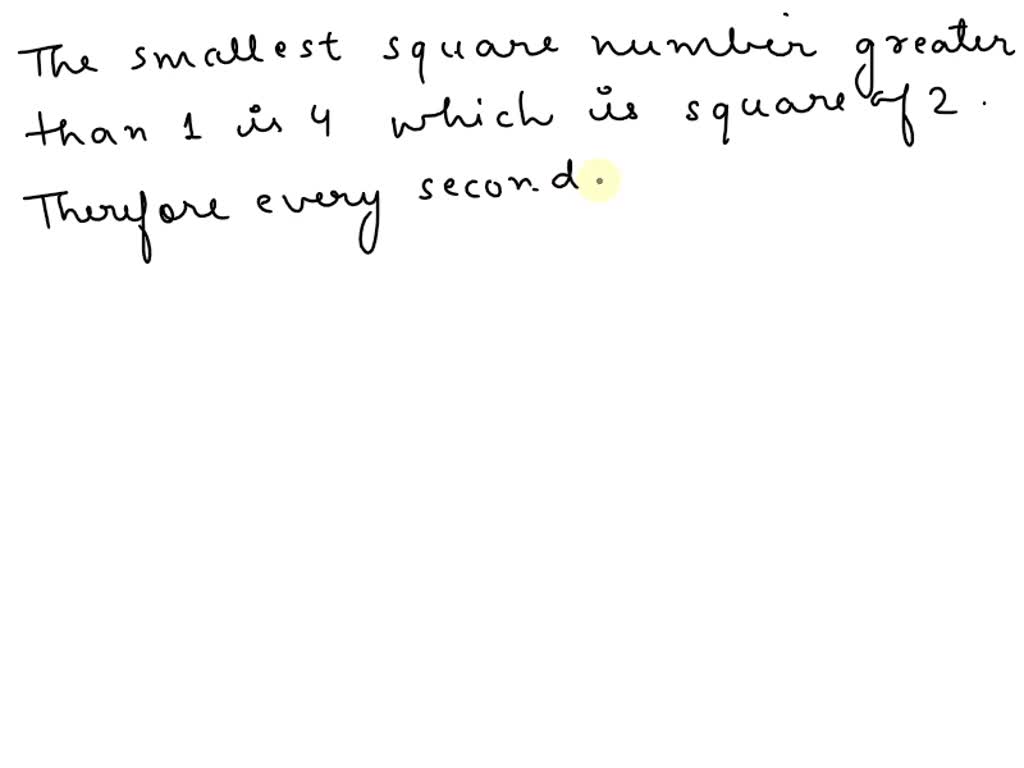 The smallest square number greater
than 1 is 4 which is square of 2.
Therefore every second.